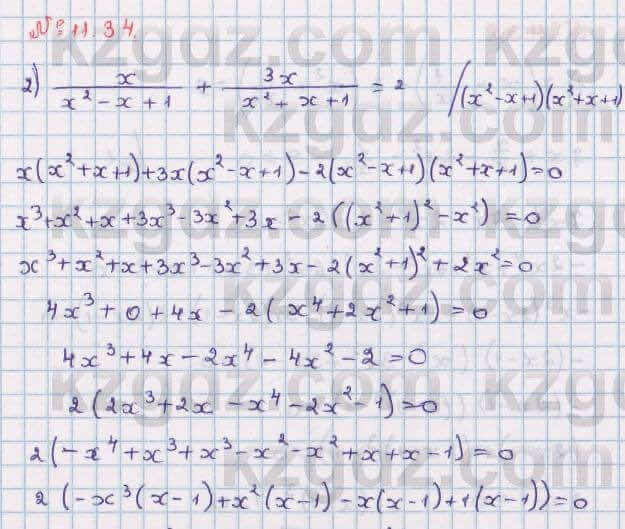 № 11.34.
2) x/(x² - x + 1) + 3x/(x² + x + 1) = 2 /(x² - x+1)(x²+x+1)
x(x²+x+1)+3x(x²-x+1)-2(x²-x+1)(x²+x+1)=0
x³+x²+x+3x³-3x²+3x-2((x²+1)²-x²)=0
x³+x²+x+3x³-3x²+3x-2(x²+1)²+2x²=0
4x³+0+4x-2(x⁴+2x²+1)=0
4x³+4x-2x⁴-4x²-2=0
2(2x³+2x-x⁴-2x²-1)=0
2(-x⁴+x³+x³-x²-x²+x+x-1)=0
2(-x³(x-1)+x²(x-1)-x(x-1)+1(x-1))=0
kzgdz.com